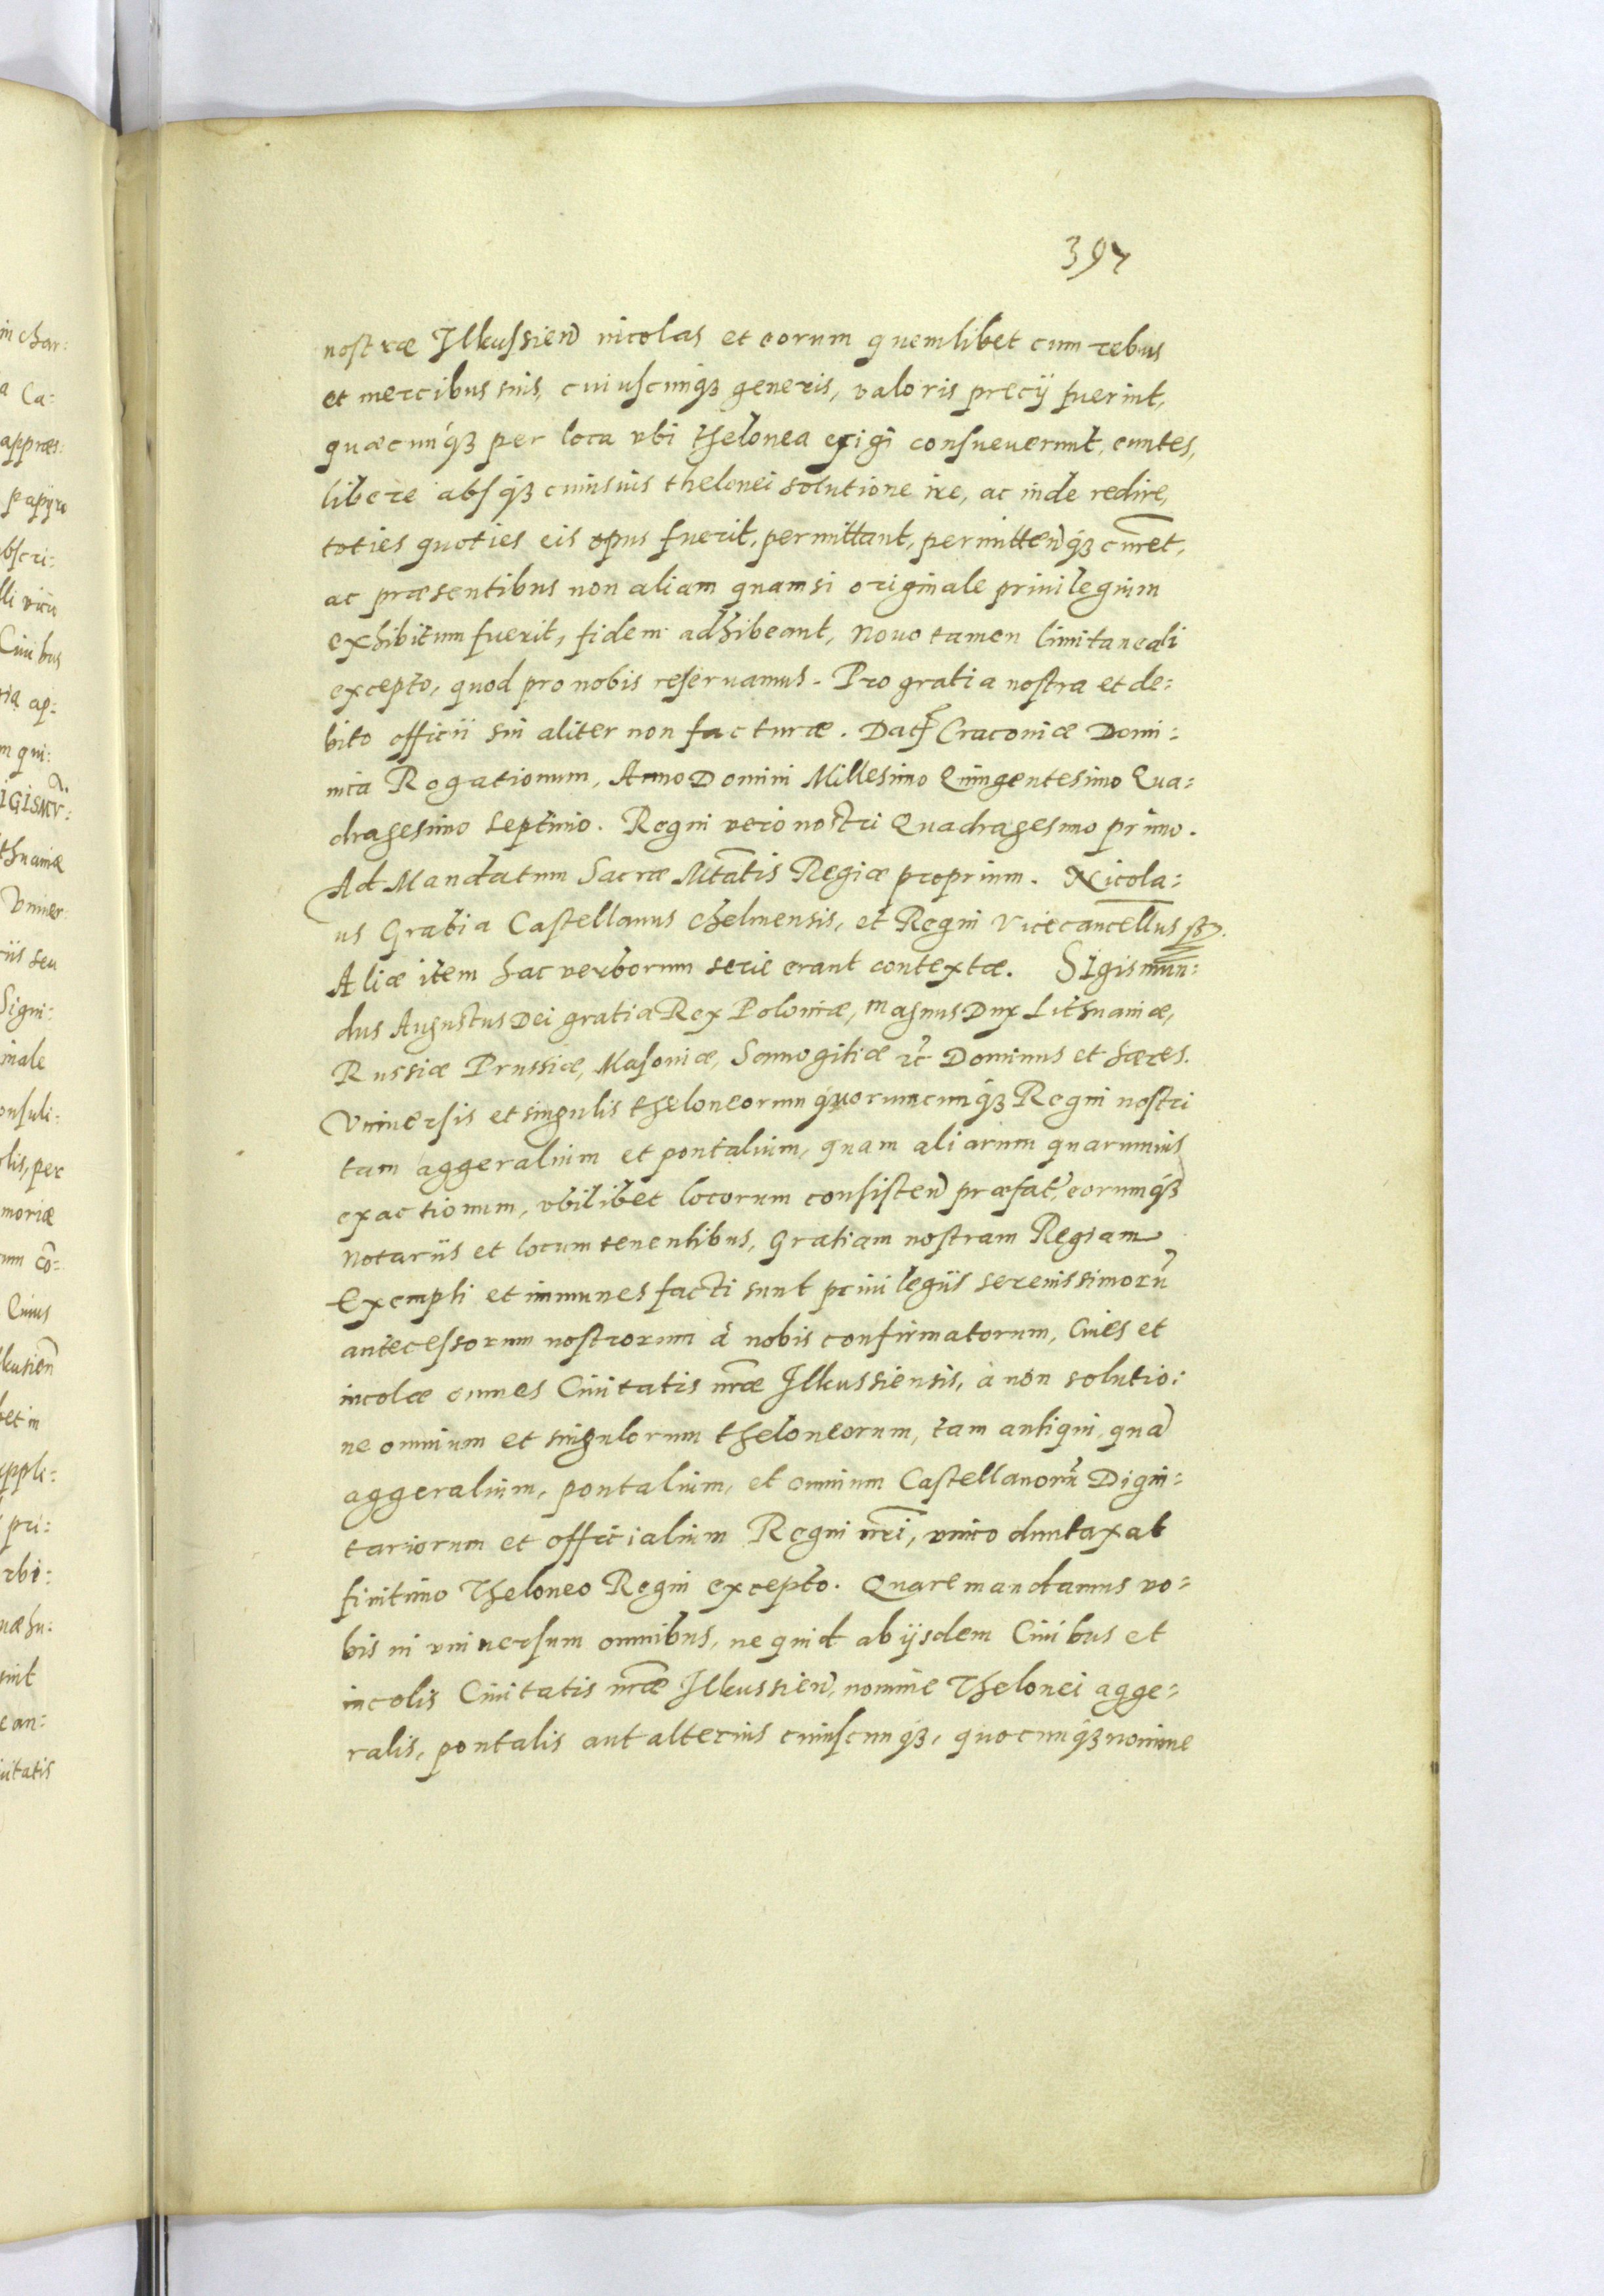 397
nostræ Ilkussień incolas et eorum quemlibet cum rebus
et mercibus suis, cuiuscunqȝ generis, valoris precij fuerint,
quæcunqȝ per loca vbi thelonea exigi consueuerunt, euntes,
libere absqȝ cuiusuis thelonei solutione ire, ac inde redire,
toties quoties eis opus fuerit, permittant, permitteńqȝ
ac præsentibus non aliam quam si originale priuilegium
exhibitum fuerit, fidem adhibeant, Nouo tamen limitaneali
excepto, quod pro nobis reseruamus. Pro gratia nostra et de:
bito officii sui aliter non facturæ. Dat Cracouiæ Domi:
nica Rogationum, Anno Domini Millesimo Quingentesimo Qua:
dragesimo septimo. Regni vero nostri Quadragesimo primo.
Ad Mandatum Sacræ Mtatis Regiæ proprium. Nicola:
us Grabia Castellanus Chelmensis, et Regni Vicecancellus sst.
Aliæ item hac verborum serie erant contextæ. Sigismun:
dus Augustus Dei gratia Rex Poloniæ, Magnus Dux Lithuaniæ,
Russiæ Prussiæ, Masouiæ, Samogitiæ etc Dominus et hæres.
Vniuersis et singulis theloneorum quorumcunqȝ Regni nostri
tam aggeralium et pontalium, quam aliarum quarumuis
exactionum, vbilibet locorum consisteń præfat, eorumqȝ
Notariis et locum tenentibus, Gratiam nostram Regiam
Exempti et immunes facti sunt priuilegiis serenissimorū
antecessorum nostrorum à nobis confirmatorum, Ciues et
incolæ omnes Ciuitatis nræ Ilkussiensis, à non solutio:
ne omnium et singulorum theloneorum, tam antiqui, quā
aggeralium, pontalium, et omnium Castellanorū Digni:
tariorum et officialium Regni nri, vnico duntaxat
finitimo Theloneo Regni excepto. Quare mandamus vo:
bis in vniuersum omnibus, ne quid ab ijsdem Ciuibus et
incolis Ciuitatis nræ Ilkussień, nomine Thelonei agge:
ralis, pontalis aut alterius cuiuscunqȝ, quocunqȝ nomine